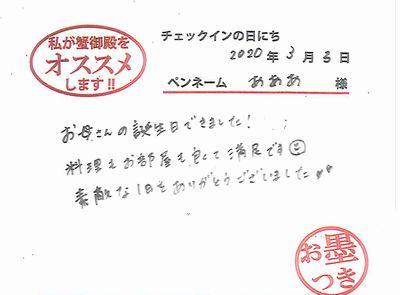 私が蟹御殿を
オススメ
します!!
チェックインの日にち
2020年3月3日
ペンネーム あああ 様
お母さんの誕生日できました!
料理もお部屋も良くて満足です
素敵な1日をありがとうございました♥♥
お墨
つき